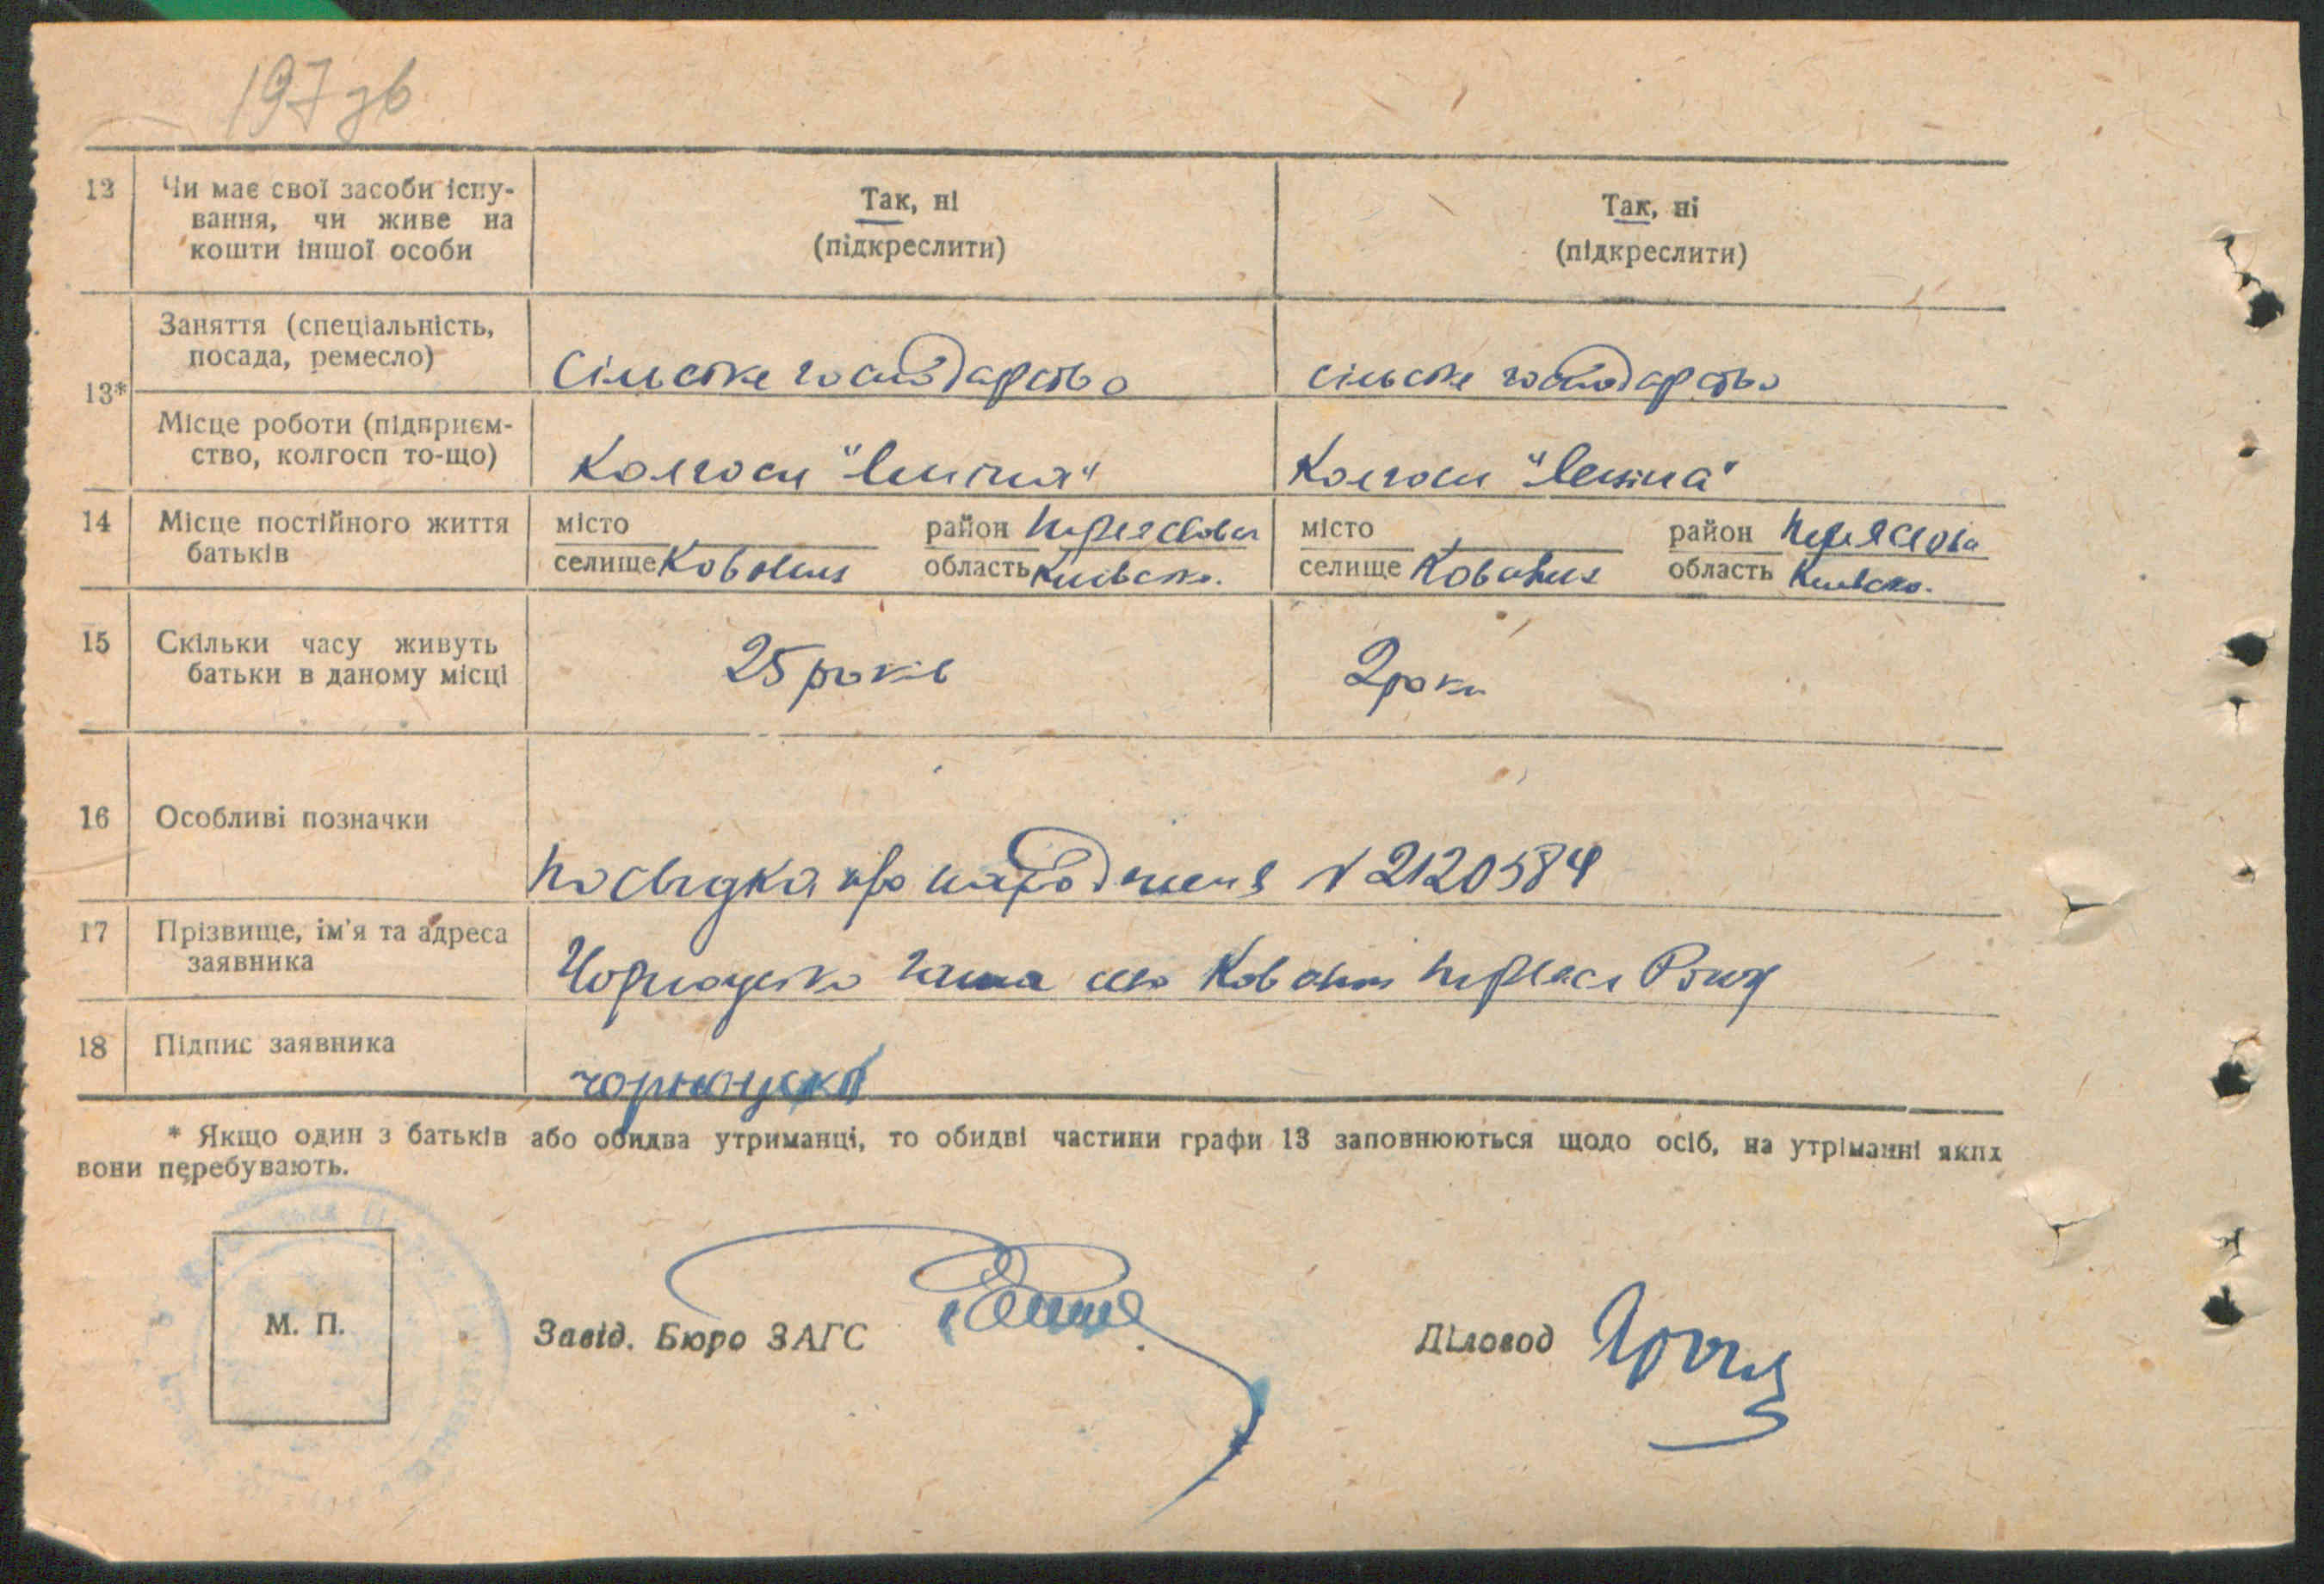 197 зв
12 Чи має свої засоби існу-
вання, чи живе на
кошти іншої особи
Так, ні
(підкреслити)
Так, ні
(підкреслити)
13*
Заняття (спеціальність,
посада, ремесло)
Сільске господарство
сільске господарство
Місце роботи (підприєм-
ство, колгосп то-що)
Колгосп "Леніна"
Колгосп "Леніна"
14 Місце постійного життя
батьків
місто район Переяслови
селище Ковалин область Київськ.
місто район Переяслови
селище Ковалин область Київсько.
15 Скільки часу живуть
батьки в даному місці
25 років
2 роки
16 Особливі позначки
Посвідка про народження № 2120584
17 Прізвище, ім'я та адреса
заявника
село Ковалин Переясл Р-ну
18 Підпис заявника
* Якщо один з батьків або обидва утриманці, то обидві частини графи 13 заповнюються щодо осіб, на утріманні яких
вони перебувають.
М. П.
Завід. Бюро ЗАГС
Діловод